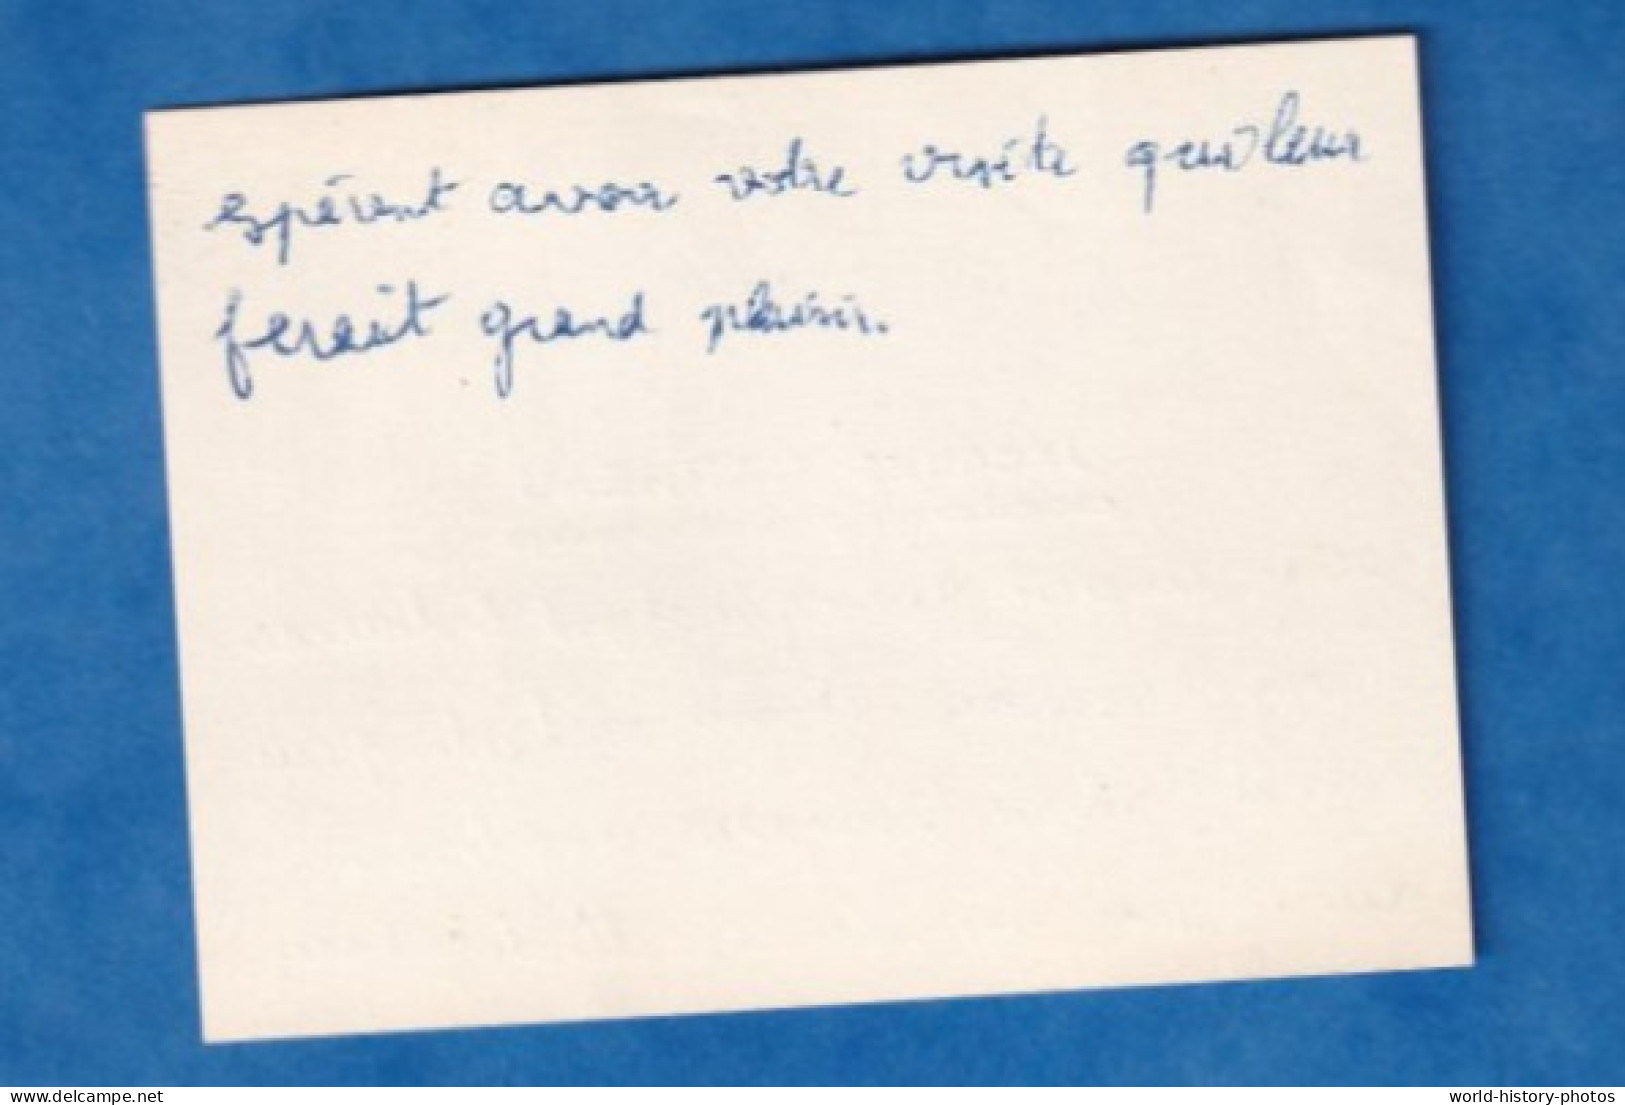 espérent avoir votre visite qui leur
ferait grand plaisir.
www.delcampe.net
world-history-photos